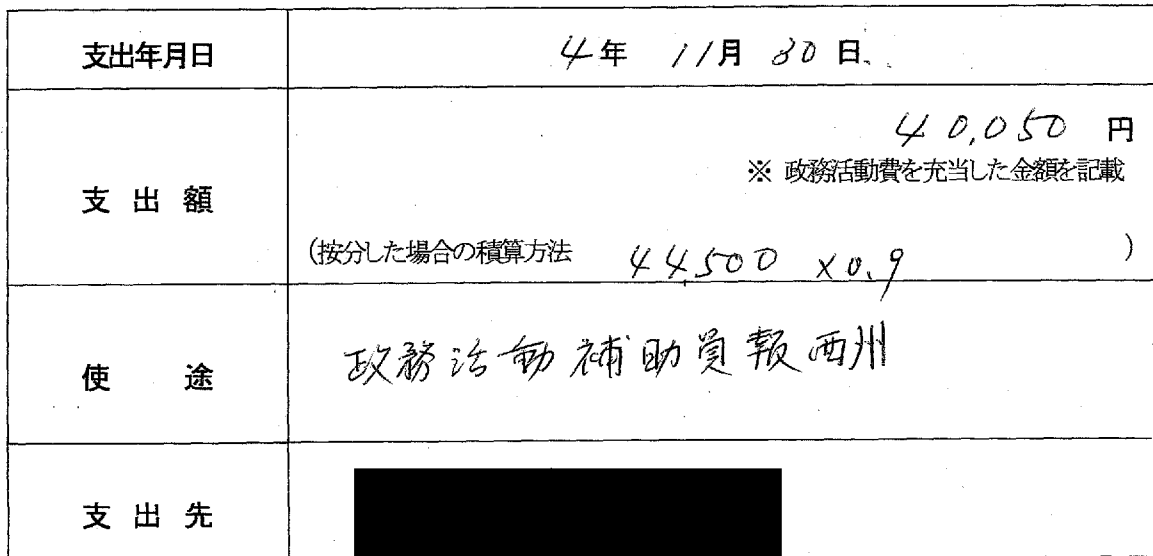 支出年月日 4年 11月 30日
40,050 円
※ 政務活動費を充当した金額を記載
支出額
(按分した場合の積算方法 44500 ×0.9 )
使途 政務活動補助員報酬
支出先